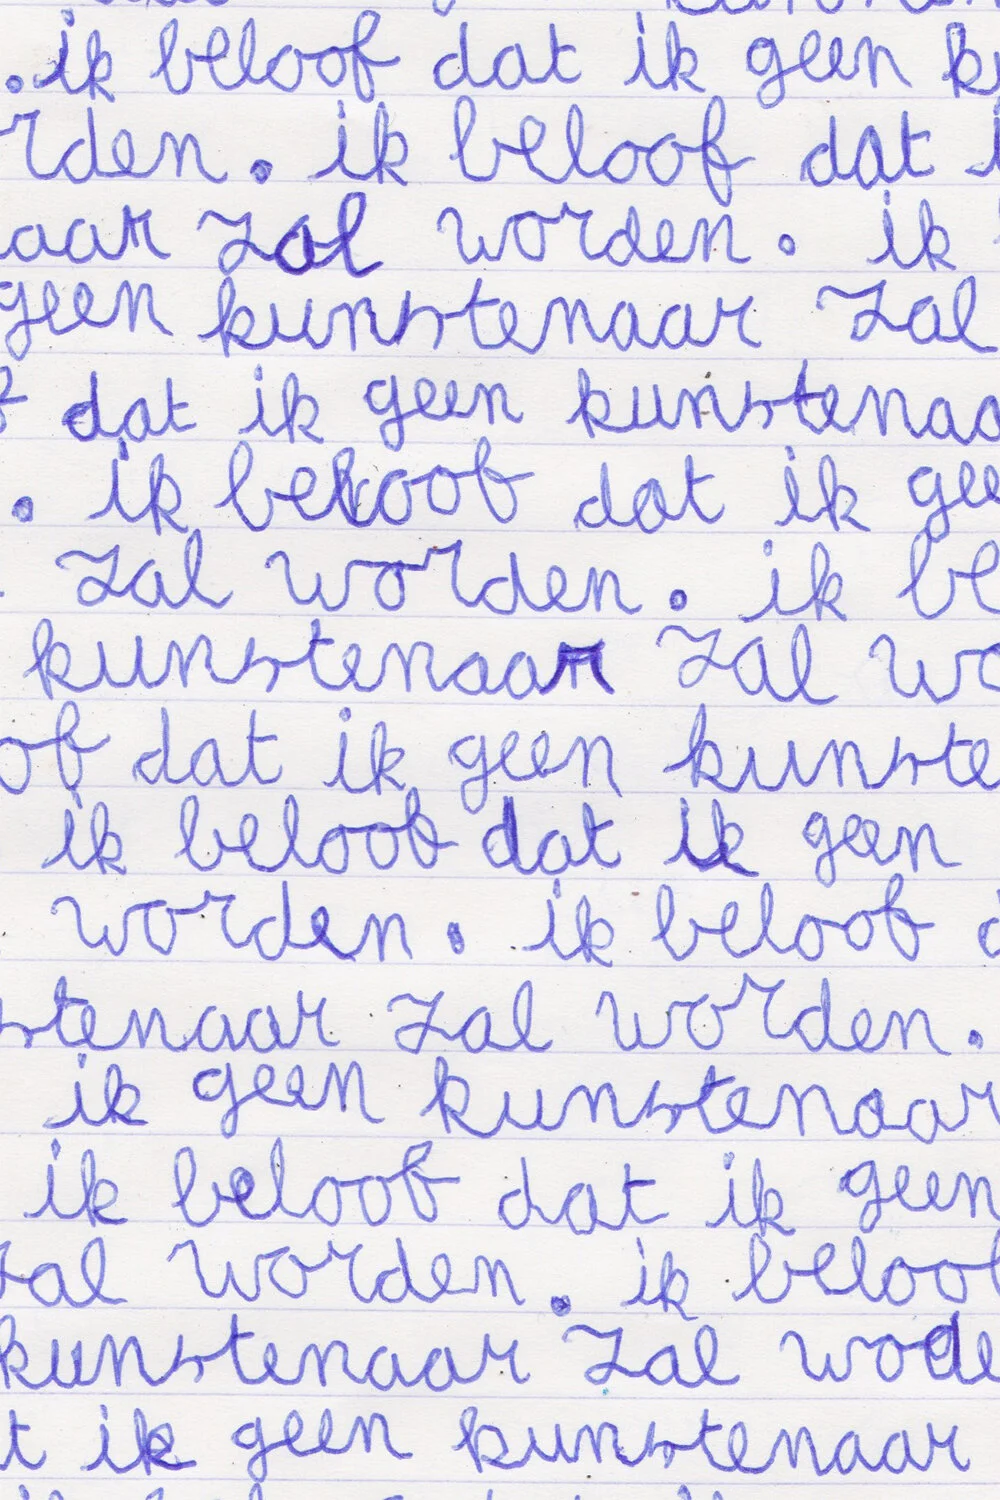 .ik beloof dat ik geen k
rden. ik beloof dat i
aar zal worden. ik
geen kunstenaar zal
f dat ik geen kunstenaa
. ik beloof dat ik gee
zal worden. ik be
kunstenaar zal wo
of dat ik geen kunste
ik beloof dat ik geen
worden. ik beloof d
stenaar zal worden.
ik geen kunstenaar
ik beloof dat ik geen
zal worden. ik beloof
kunstenaar zal wode
t ik geen kunstenaar